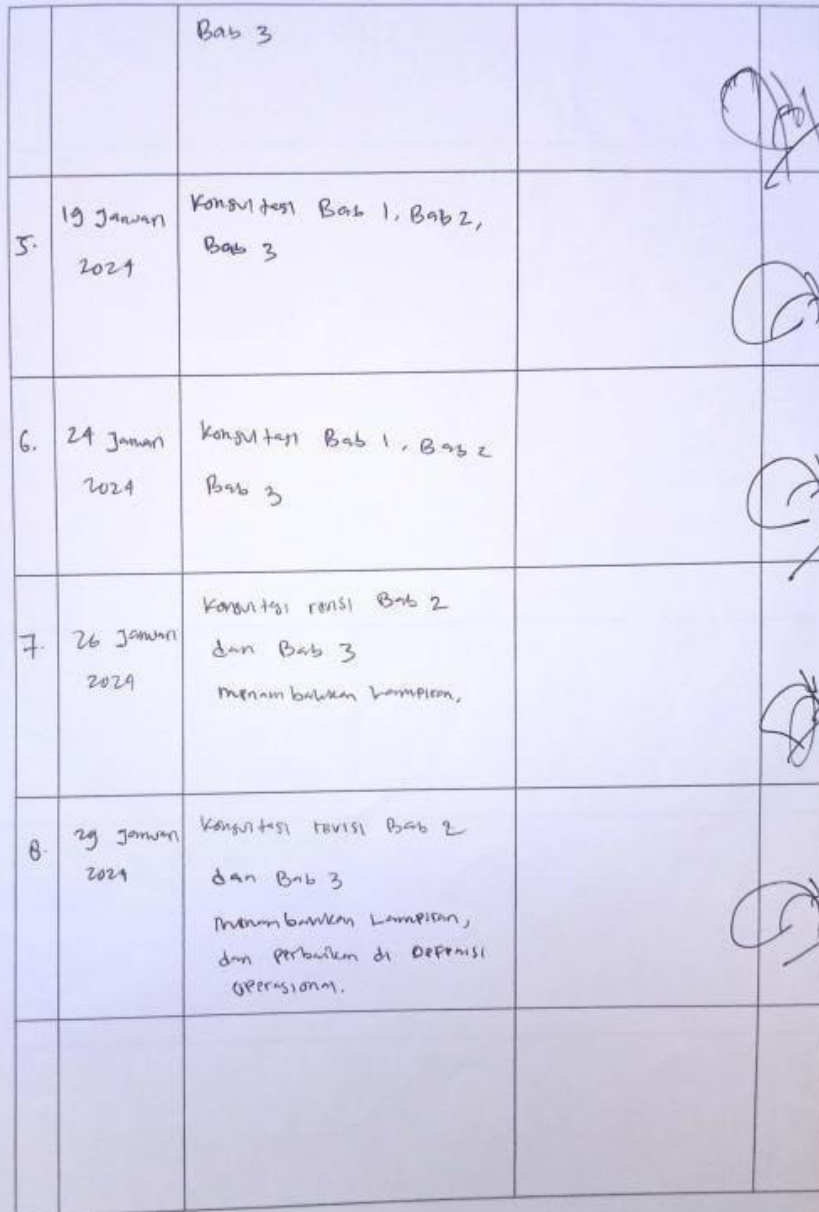 Bab 3
5.
19 Januari
2024
Konsultasi Bab 1, Bab 2,
Bab 3
6.
24 Januari
2024
Konsultasi Bab 1, Bab 2
Bab 3
7.
26 Januari
2024
Konsultasi revisi Bab 2
dan Bab 3
menambahkan Lampiran,
8.
29 Januari
2024
Konsultasi revisi Bab 2
dan Bab 3
menambahkan Lampiran,
dan perbaikan di Defenisi
Operasional.